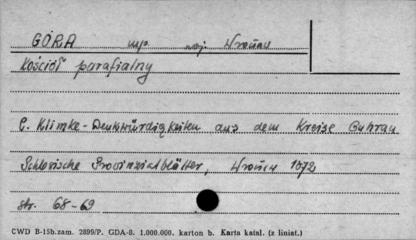 GÓRA woj. Wrocław
Kościół parafialny
C. Klimke - Denkwürdigkeiten aus dem Kreise Guhrau
Schlesische Provinzialblätter, Wrocław 1872
str. 68-69
CWD B-15b.zam. 2899/P. GDA-8. 1.000.000. karton b. Karta katal. (z liniat.)